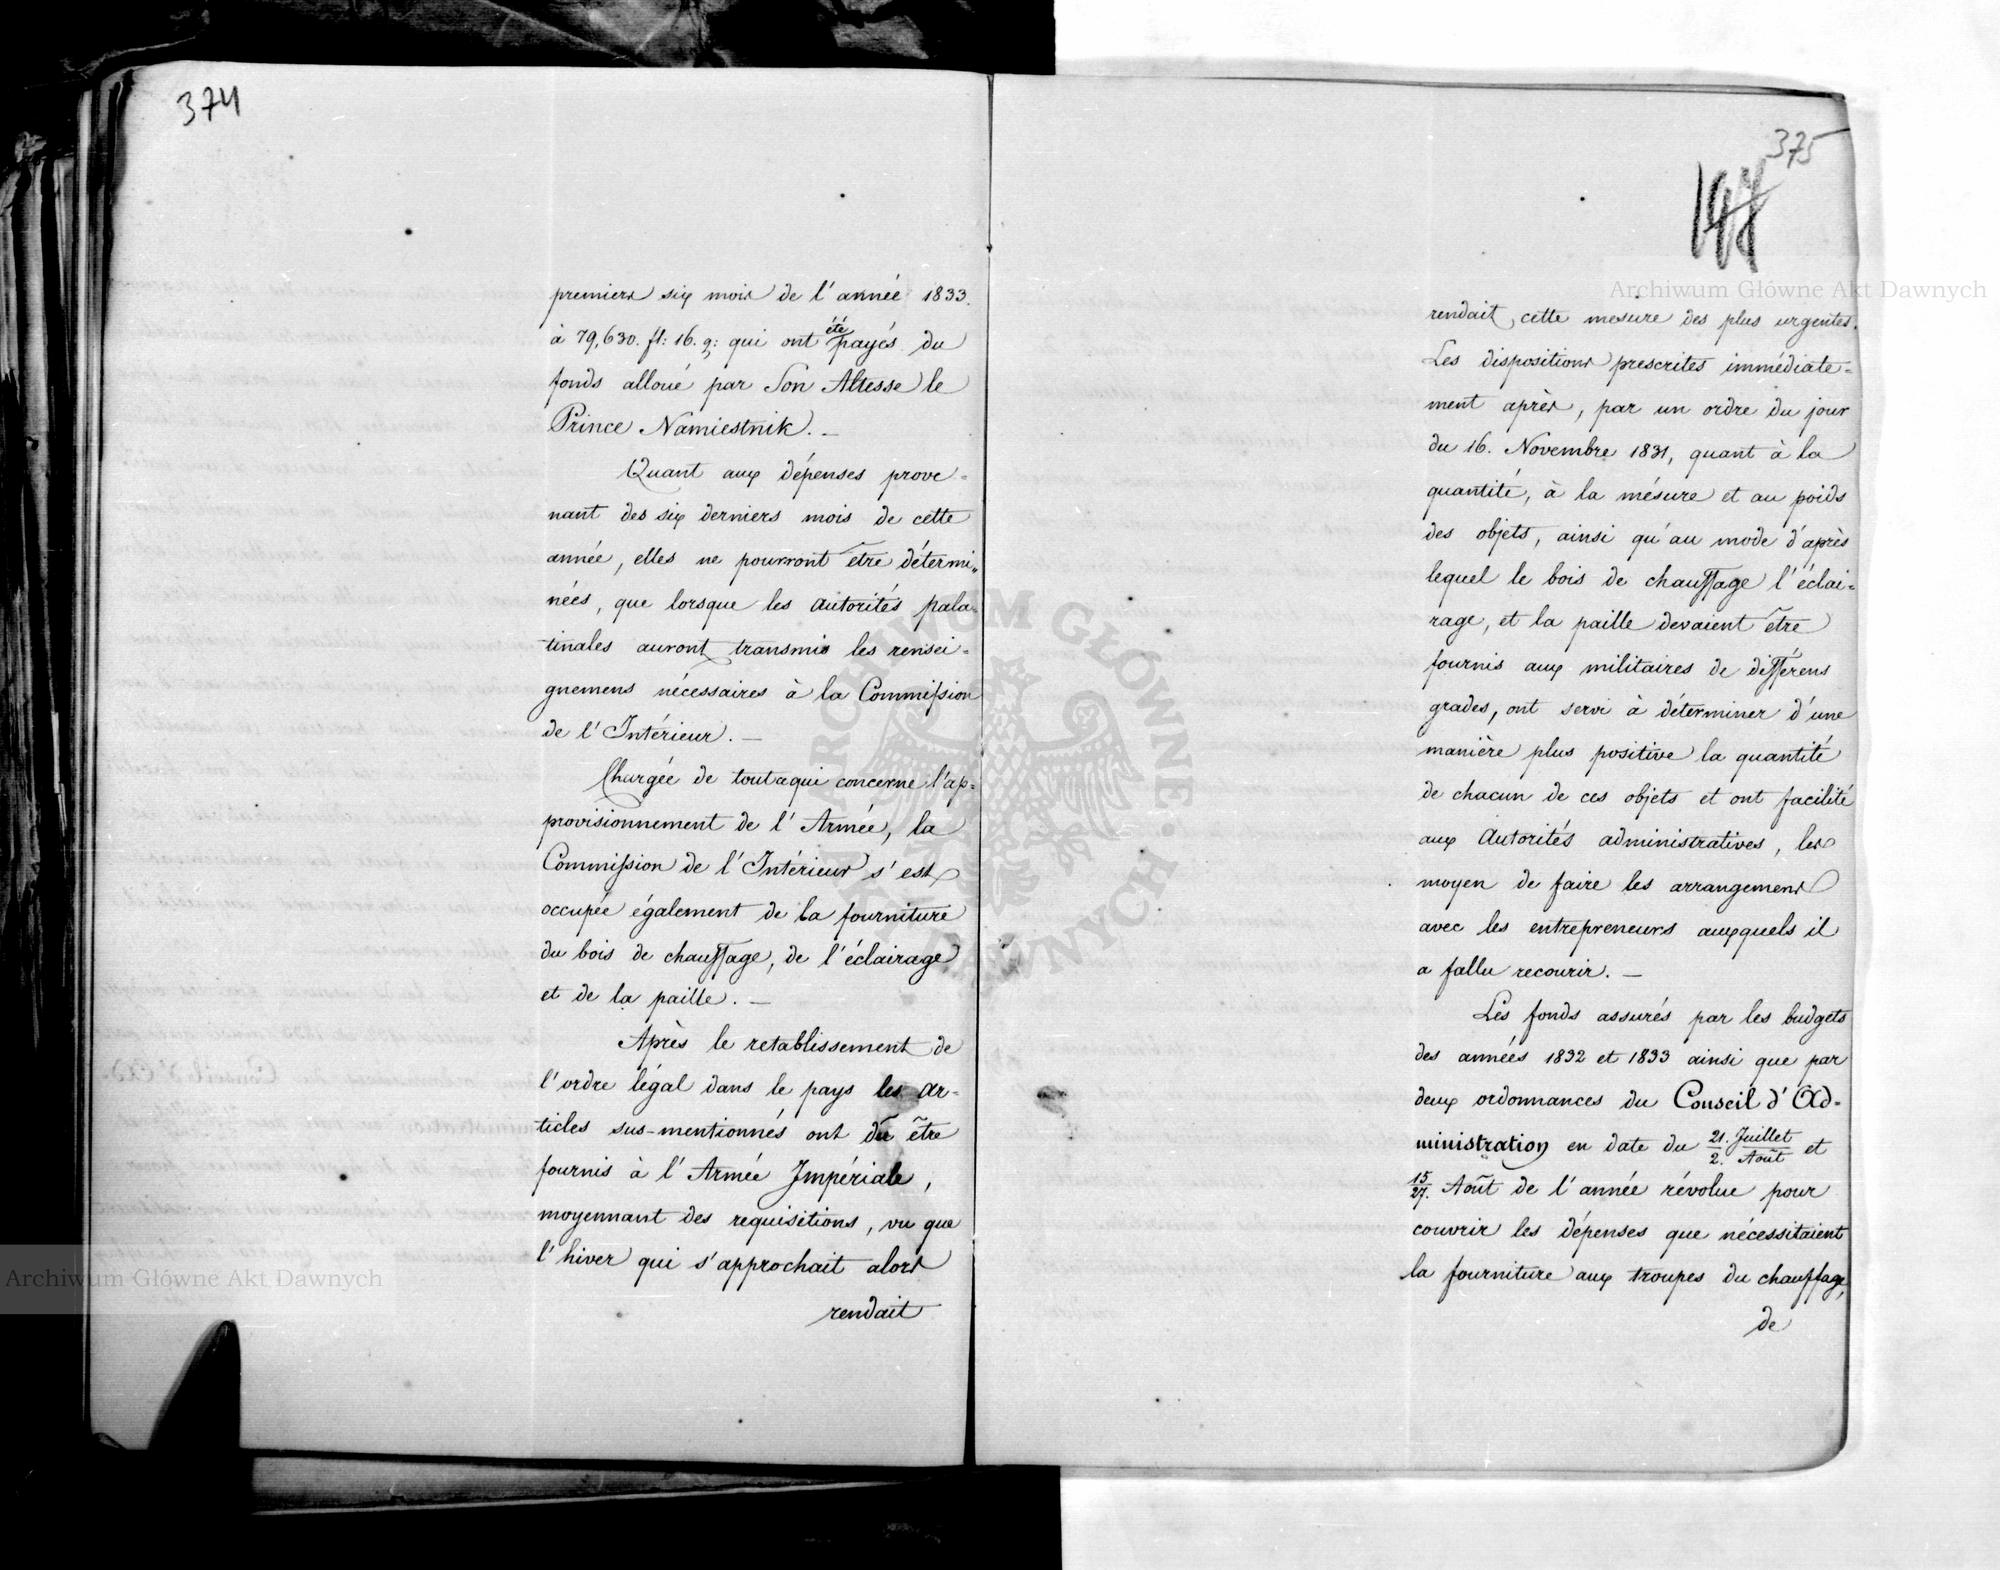 374
premiers six mois de l'année 1833.
à 79,630. fl: 16. g: qui ont été payés du
fonds alloué par Son Altesse le
Prince Namiestnik. —
Quant aux dépenses prove-
nant des six derniers mois de cette
année, elles ne pourront être détermi„
nées, que lorsque les Autorités pala-
tinales auront transmis les rensei-
gnemens nécessaires à la Commission
de l'Intérieur. —
Chargée de tout ce qui concerne l'ap-
provisionnement de l'Armée, la
Commission de l'Intérieur s'est
occupée également de la fourniture
du bois de chauffage, de l'éclairage
et de la paille. —
Après le retablissement de
l'ordre légal dans le pays les ar-
ticles sus-mentionnés ont du être
fournis à l'Armée Impériale,
moyennant des requisitions, vu que
l'hiver qui s'approchait alors
rendait
375
197
rendait cette mesure des plus urgentes.
Les dispositions prescrites immédiate-
ment après, par un ordre du jour
du 16. Novembre 1831, quant à la
quantité, à la mésure et au poids
des objets, ainsi qu'au mode d'après
lequel le bois de chauffage l'éclai-
rage, et la paille devaient être
fournis aux militaires de différens
grades, ont servi à déterminer d'une
manière plus positive la quantité
de chacun de ces objets et ont facilité
aux Autorités administratives, les
moyen de faire les arrangemens
avec les entrepreneurs auxquels il
a fallu recourir. —
Les fonds assurés par les budgets
des années 1832 et 1833 ainsi que par
deux ordonnances du Conseil d'Ad-
ministration en date du 21. Juillet / 2. Août et
15/27. Août de l'année révolue pour
couvrir les dépenses que nécessitaient
la fourniture aux troupes du chauffage,
de
Archiwum Główne Akt Dawnych
Archiwum Główne Akt Dawnych
ARCHIWUM GŁÓWNE AKT DAWNYCH